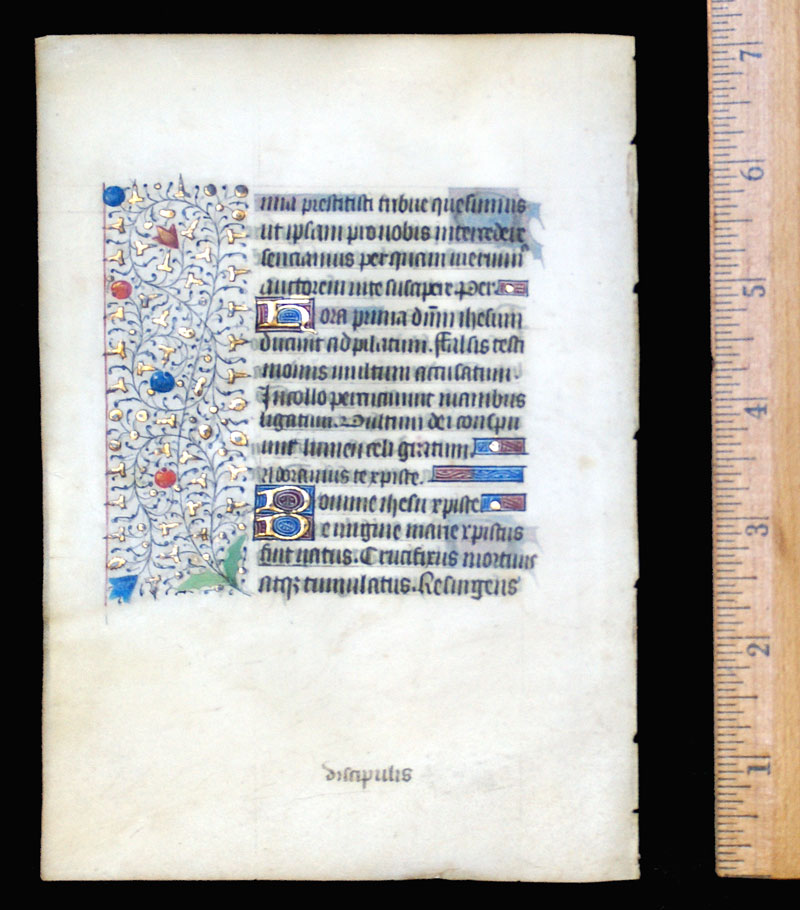 mia prestitisti tribue quesumus
ut ipsam pro nobis intercedere
senciamus per quam meruim̄
auctorem vite suscipere. Per.
Hora prima dn̄m ihesum
ducunt ad pilatum. Falsis testi
moniis multum accusatum.
In collo percuciunt manibus
ligatum. Vultum dei conspu
unt lumen celi gratum.
Adoramus te xpiste.
Domine ihesu xpiste
De virgine marie xpistus
fuit natus. Crucifixus mortuus
atqꝫ tumulatus. Resurgens
discipulis
7
6
5
4
3
2
1